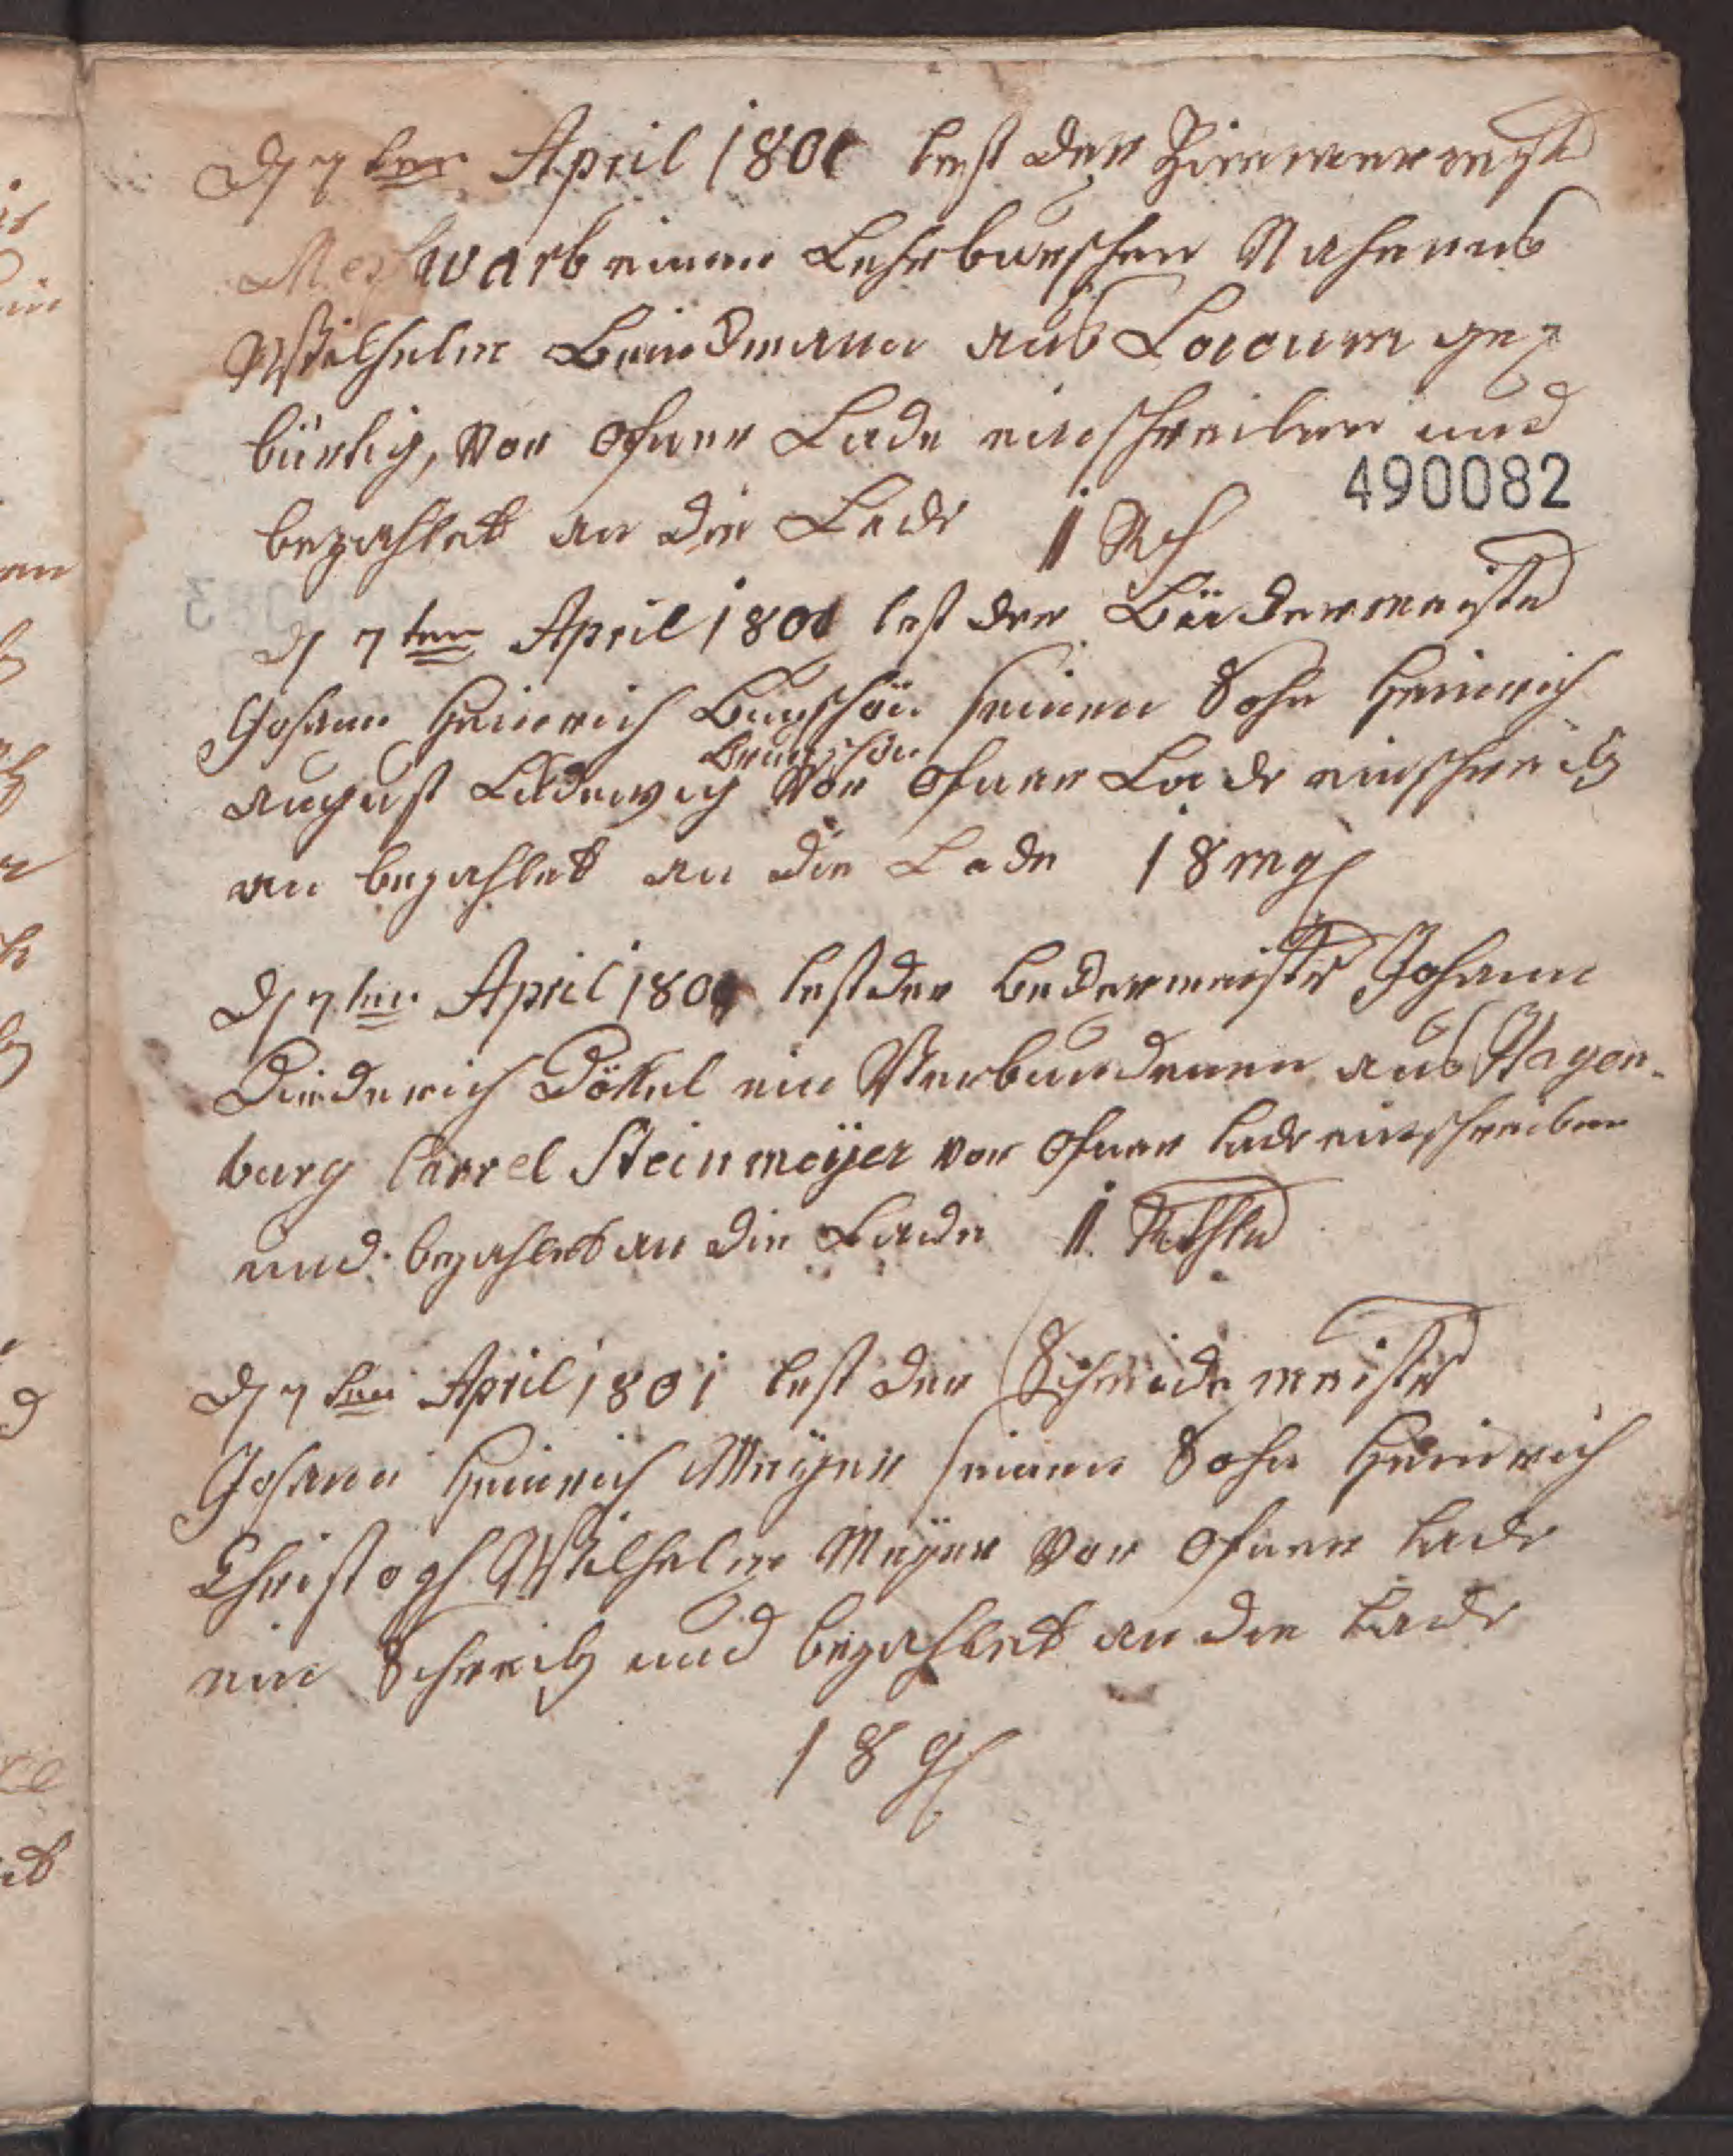 D 7ten April 1801 lest der Zimmermstr
Meywarb einen Lehrburschen Nahmens
Wilhelm Baudmann aus Loccum ge=
bürtig, vor ofner Lade einschreiben und
490082
bezahlet an die Lade 1 Rth
D 7ten April 1801 lest der Bädermeister
Johann Heinrich Bruschön seinen Sohn Heinrich
Bruschön
August Ludewig vor ofner Lade einschreib
en bezahlet an die Lade 18 mg
D 7ten April 1801 lest der Bedermeister Johann
Diederich Dökel ein Verbundenen aus Hagen-
burg Carrel Steinmeÿer vor ofner Lade einschreiben
und bezahlet an die Lade 1 Rthlr
D 7ten April 1801 lest der Schneidermeister
Johann Heinrich Meÿer seinen Sohn Heinrich
Christoph Wilhelm Meÿer vor ofner Lade
ein Schreib und bezahlet an die Lade
18 g